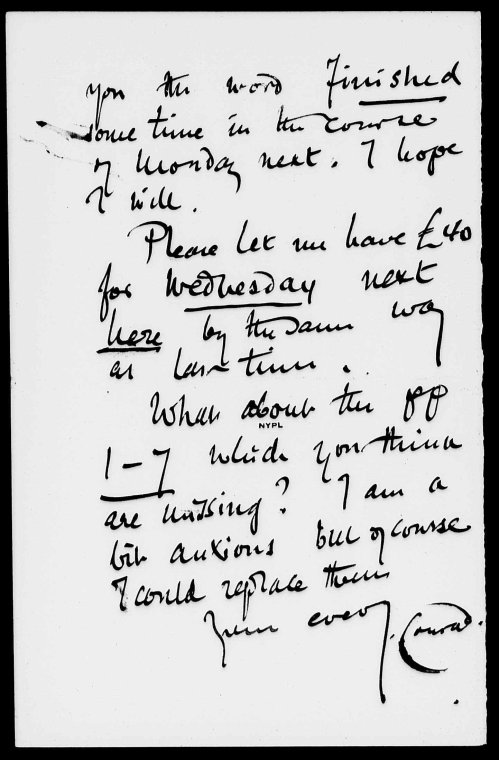 you the word Finished
some time in the course
of Monday next. I hope
I will.
Please let me have £40
for Wednesday next
here by the same way
as last time.
What about the pp
NYPL
1-7 which you think
are missing? I am a
bit anxious but of course
I could replace them
Yours ever
J. Conrad.